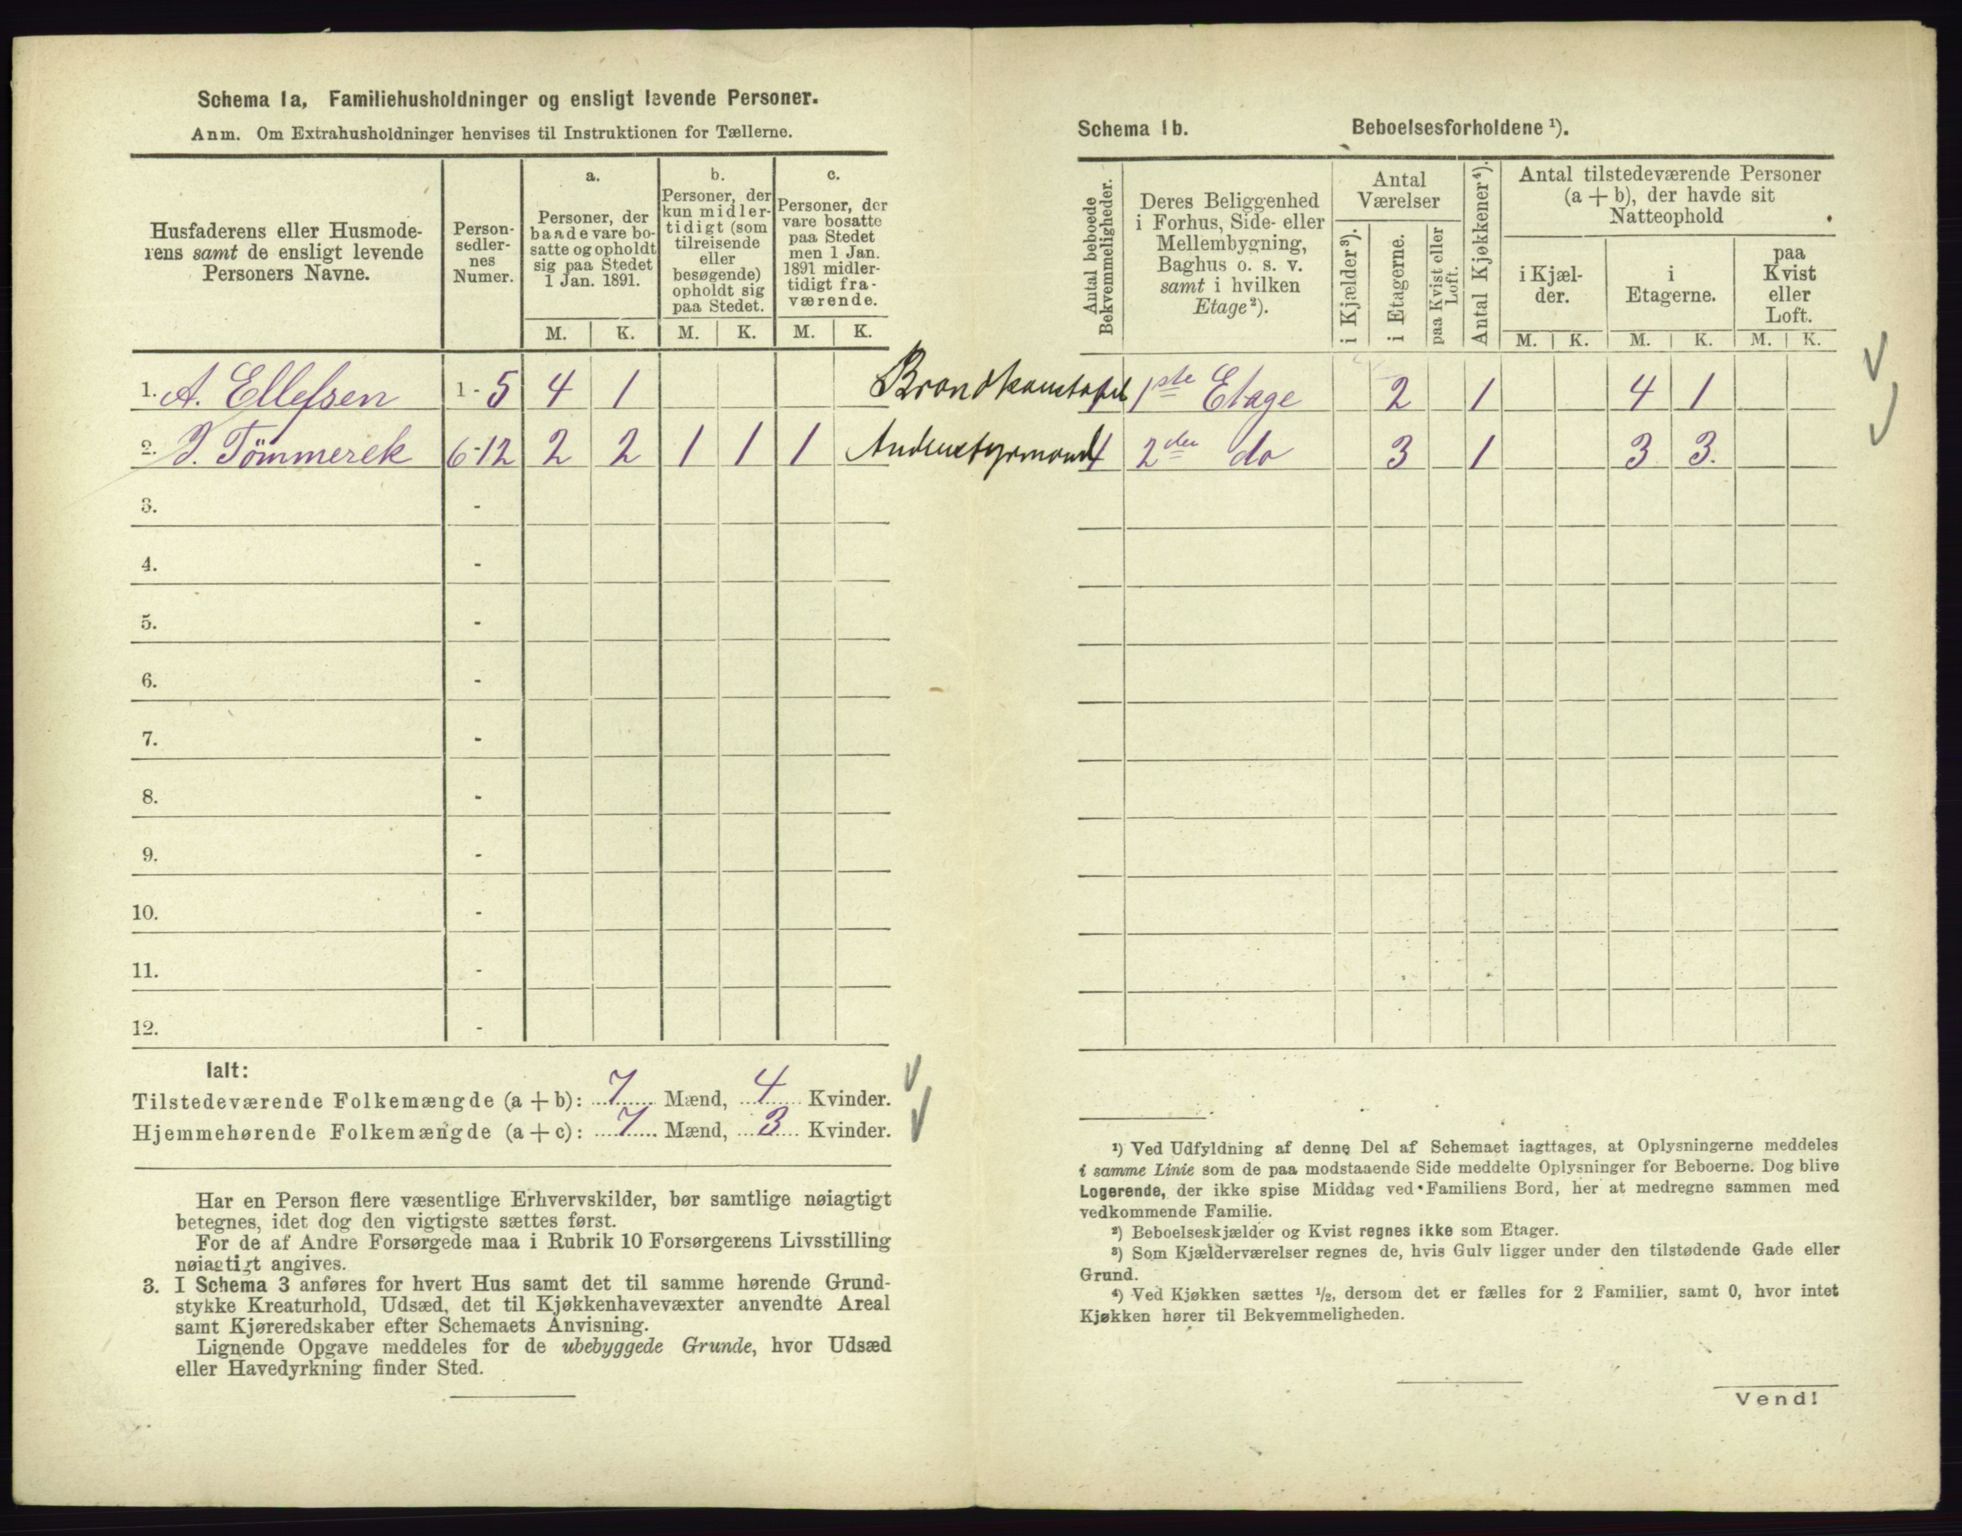 Schema 1a, Familiehusholdninger og ensligt levende Personer.
Anm. Om Extrahusholdninger henvises til Instruktionen for Tællerne.
Husfaderens eller Husmode-
rens samt de ensligt levende
Personers Navne.
Person-
sedler-
nes
Numer.
a.
Personer, der
baade vare bo-
satte og opholdt
sig paa Stedet
1 Jan. 1891.
b.
Personer, der
kun midler-
tidigt (som
tilreisende
eller
besøgende)
opholdt sig
paa Stedet.
c.
Personer, der
vare bosatte
paa Stedet
men 1 Jan.
1891 midler-
tidigt fra-
værende.
M. K. M. K. M. K.
1. A. Ellefsen 1-5 4 1 Brandkonstabel
2. J. Tömmerek 6-12 2 2 1 1 1 Andenstyrmand
3. -
4. -
5. -
6. -
7. -
8. -
9. -
10. -
11. -
12. -
Ialt:
Tilstedeværende Folkemængde (a + b): 7 Mænd, 4 Kvinder.
Hjemmehørende Folkemængde (a + c): 7 Mænd, 3 Kvinder.
Har en Person flere væsentlige Erhvervskilder, bør samtlige nøiagtigt
betegnes, idet dog den vigtigste sættes først.
For de af Andre Forsørgede maa i Rubrik 10 Forsørgerens Livsstilling
nøiagtigt angives.
3. I Schema 3 anføres for hvert Hus samt det til samme hørende Grund-
stykke Kreaturhold, Udsæd, det til Kjøkkenhavevæxter anvendte Areal
samt Kjøreredskaber efter Schemaets Anvisning.
Lignende Opgave meddeles for de ubebyggede Grunde, hvor Udsæd
eller Havedyrkning finder Sted.
Schema 1b. Beboelsesforholdene ¹).
Antal beboede
Bekvemmeligheder.
Deres Beliggenhed
i Forhus, Side- eller
Mellembygning,
Baghus o. s. v.
samt i hvilken
Etage²).
Antal
Værelser
i Kjælder³).
i Etagerne.
paa Kvist eller
Loft.
Antal Kjøkkener⁴).
Antal tilstedeværende Personer
(a + b), der havde sit
Natteophold
i Kjæl-
der.
i
Etagerne.
paa
Kvist
eller
Loft.
M. K. M. K. M. K.
1ste Etage 2 1 4 1
2den do 3 1 3 3.
¹) Ved Udfyldning af denne Del af Schemaet iagttages, at Oplysningerne meddeles
i samme Linie som de paa modstaaende Side meddelte Oplysninger for Beboerne. Dog blive
Logerende, der ikke spise Middag ved Familiens Bord, her at medregne sammen med
vedkommende Familie.
²) Beboelseskjælder og Kvist regnes ikke som Etager.
³) Som Kjælderværelser regnes de, hvis Gulv ligger under den tilstødende Gade eller
Grund.
⁴) Ved Kjøkken sættes ½, dersom det er fælles for 2 Familier, samt 0, hvor intet
Kjøkken hører til Bekvemmeligheden.
Vend!